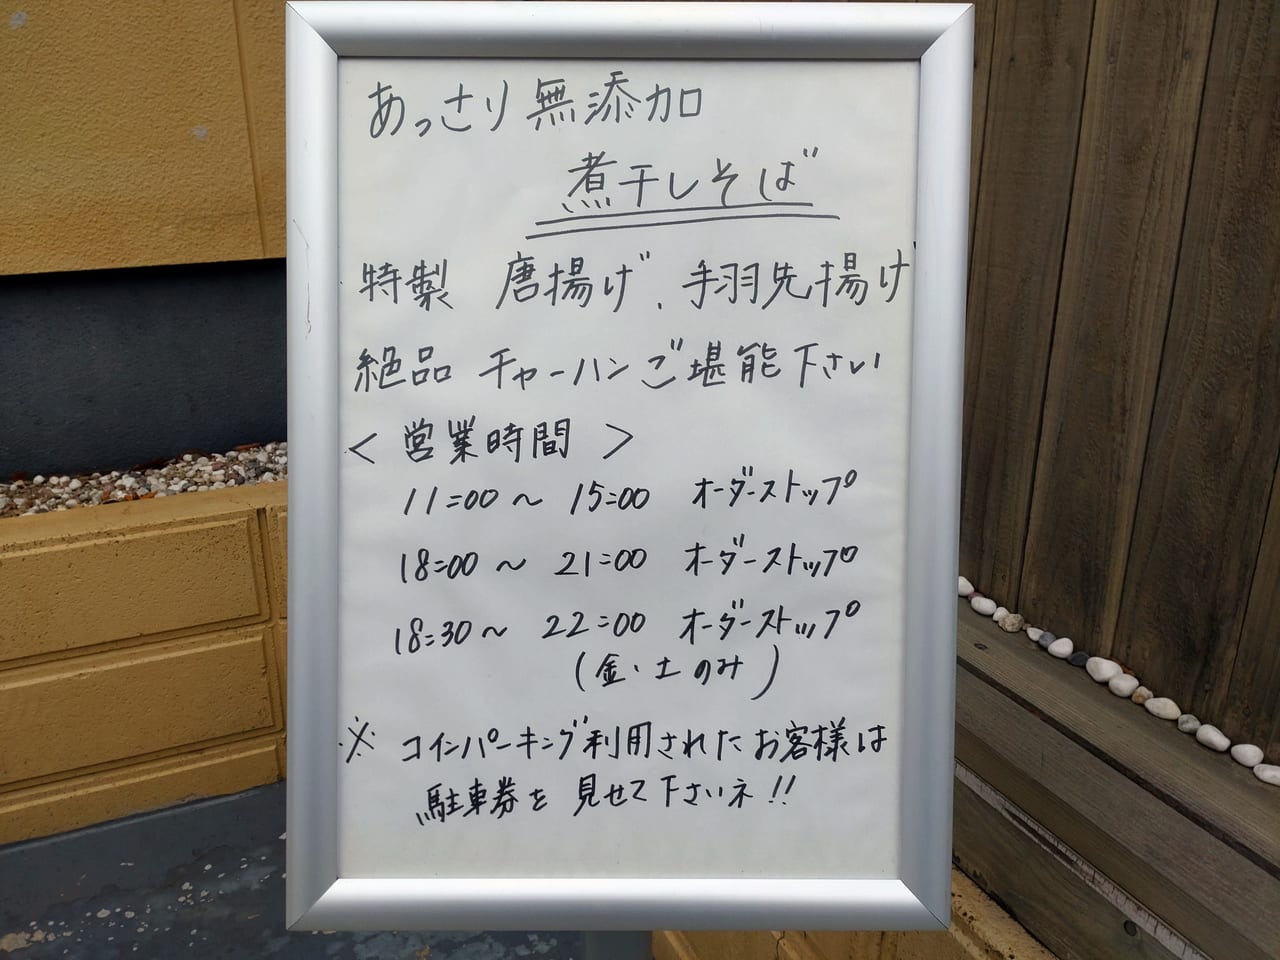 あっさり無添加
煮干しそば
特製 唐揚げ、手羽先揚げ
絶品 チャーハンご堪能下さい
<営業時間>
11:00～15:00 オーダーストップ
18:00～21:00 オーダーストップ
18:30～22:00 オーダーストップ
(金・土のみ)
※ コインパーキング利用されたお客様は
駐車券を見せて下さいネ!!